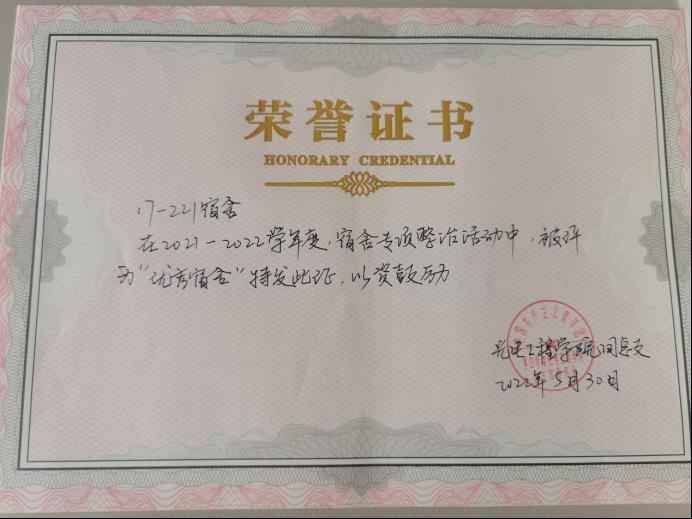 荣誉证书
HONORARY CREDENTIAL
17-221宿舍
在2021-2022学年度,宿舍专项整治活动中,被评
为"优秀宿舍"特发此证,以资鼓励
光电工程学院团总支
2022年5月30日